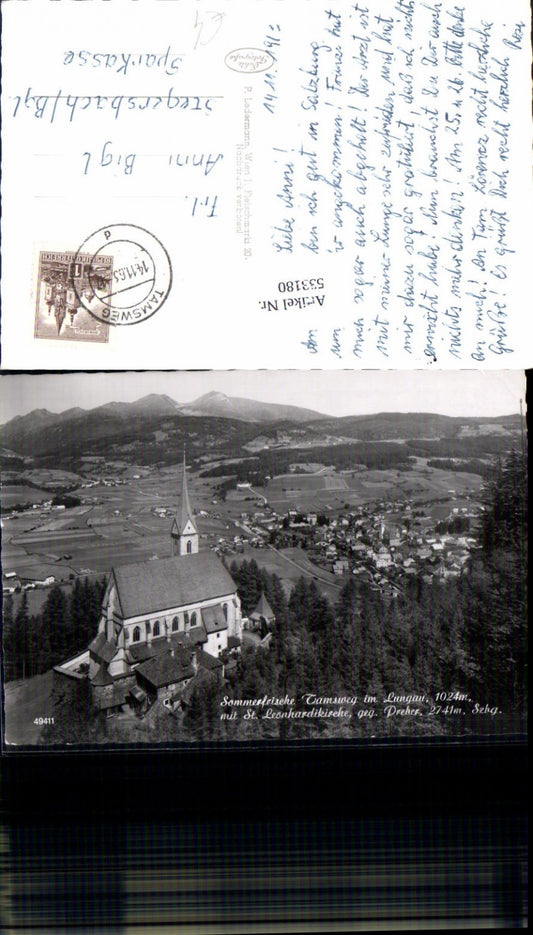 14.11.1963
Liebe Anni!
bin ich gut in Salzburg
angekommen! Franzi hat
mich sogar auch abgeholt! Der Arzt ist
mit meiner Lunge sehr zufrieden und hat
mir dazu sogar gratuliert, daß ich nichts
erwischt habe! Nun brauchst Du Dir auch
nichts mehr denken! Am 25. u. 26. bitte denke
an mich! An Fam. Lorenz recht herzliche
Grüße! Es grüßt Dich recht herzlich Resi
Artikel Nr.
533180
P. Ledermann, Wien I, Fleischmarkt 20.
Nachdruck verboten!
Frl.
Anni Bigl
Stegersbach/Bgl
Sparkasse
TAMSWEG
14.11.63
REPUBLIK ÖSTERREICH
49411
Sommerfrische Tamsweg im Lungau, 1024m,
mit St. Leonhardikirche, geg. Preber, 2741m, Szbg.